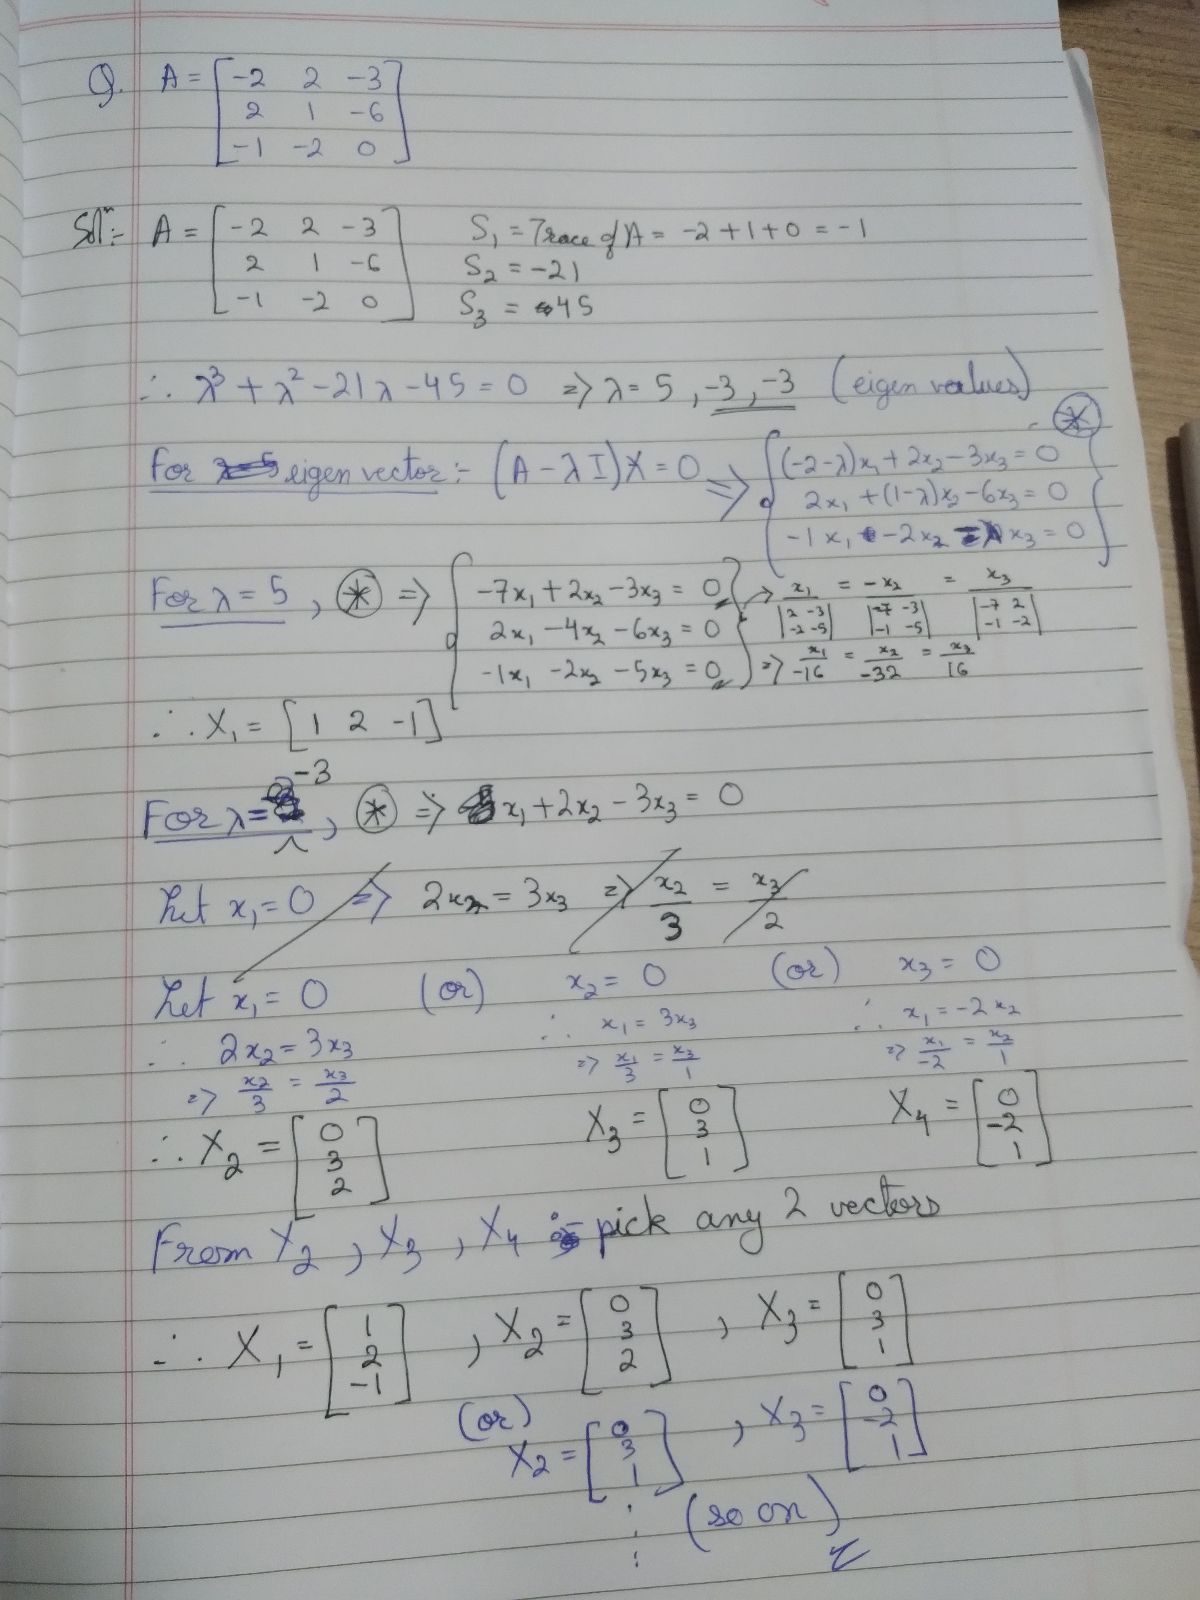 Q. A = [-2 2 -3
2 1 -6
-1 -2 0]
Solⁿ:- A = [-2 2 -3 S₁ = Trace of A = -2+1+0 = -1
2 1 -6 S₂ = -21
-1 -2 0] S₃ = 45
∴ λ³ + λ² - 21λ - 45 = 0 => λ = 5, -3, -3 (eigen values)
For eigen vector:- (A - λI)X = 0 => { (-2-λ)x₁ + 2x₂ - 3x₃ = 0 ⊛
2x₁ + (1-λ)x₂ - 6x₃ = 0
-1x₁ - 2x₂ - λx₃ = 0 }
For λ = 5, ⊛ => { -7x₁ + 2x₂ - 3x₃ = 0 → x₁/|2 -3; -2 -5| = -x₂/|-7 -3; -1 -5| = x₃/|-7 2; -1 -2|
2x₁ - 4x₂ - 6x₃ = 0
-1x₁ - 2x₂ - 5x₃ = 0 } => x₁/-16 = x₂/-32 = x₃/16
∴ X₁ = [1 2 -1]
For λ = -3, ⊛ => x₁ + 2x₂ - 3x₃ = 0
Let x₁ = 0 => 2x₂ = 3x₃ => x₂/3 = x₃/2
Let x₁ = 0 (or) x₂ = 0 (or) x₃ = 0
∴ 2x₂ = 3x₃ ∴ x₁ = 3x₃ ∴ x₁ = -2x₂
=> x₂/3 = x₃/2 => x₁/3 = x₃/1 => x₁/-2 = x₂/1
∴ X₂ = [0 3 2] X₃ = [0 3 1] X₄ = [0 -2 1]
From X₂, X₃, X₄ pick any 2 vectors
∴ X₁ = [1 2 -1], X₂ = [0 3 2], X₃ = [0 3 1]
(or)
X₂ = [0 3 1], X₃ = [0 -2 1]
⋮ (so on)